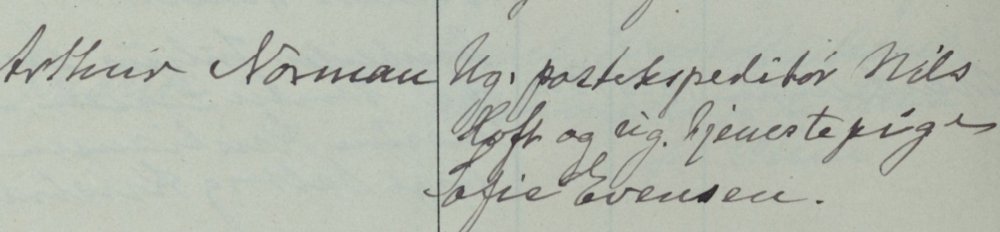 Arthur Norman
Ug. postekspeditør Nils
Hoft og ug. tjenestepige
Sofie Evensen.